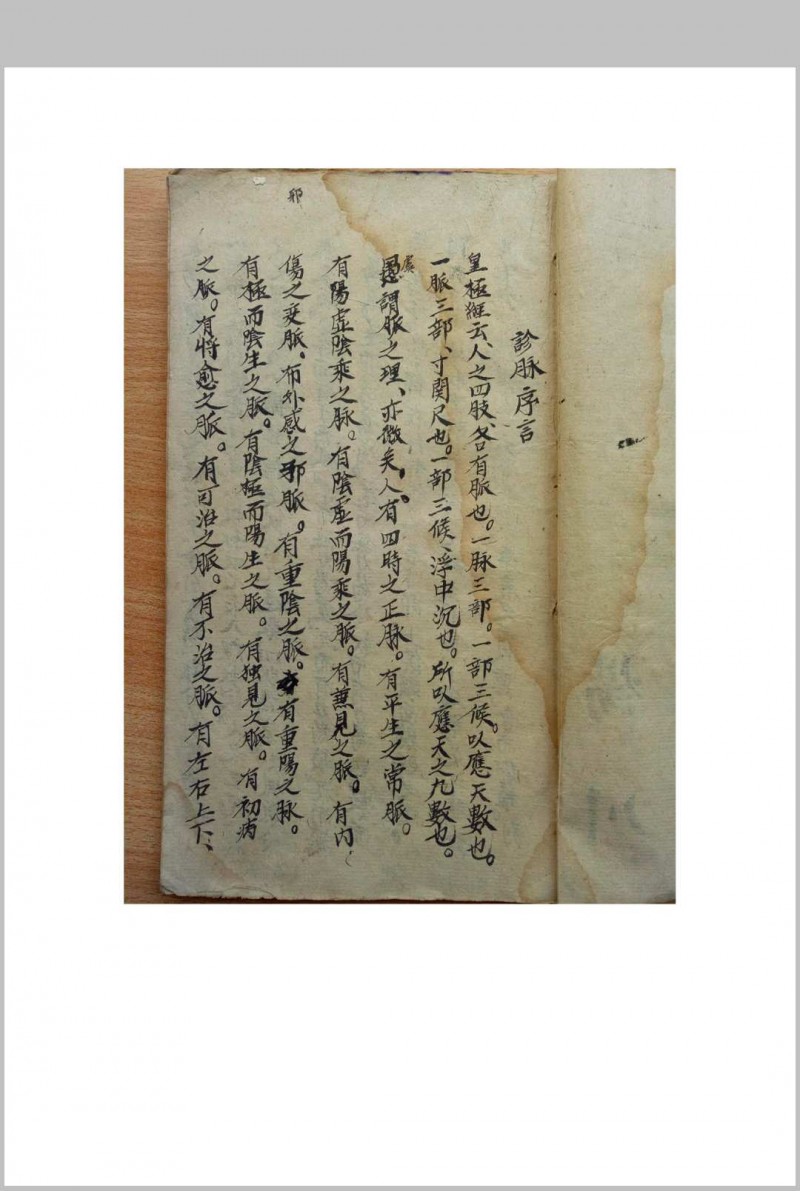 診脈序言
皇極經云、人之四肢、各有脈也。一脉三部。一部三候。以應天數也。
一脈三部、寸関尺也。一部三候、浮中沉也。所以應天之九數也。
愚謂脈之理、亦微矣。人、有四時之正脉。有平生之常脈。
有陽虛陰乘之脉。有陰虛而陽乘之脈。有兼見之脈。有內
傷之変脈。有外感之邪脈。有重陰之脈。有重陽之脉。
邪
有極而陰生之脈。有陰極而陽生之脈。有独見之脈。有初病
之脈。有將愈之脈。有可治之脈。有不治之脈。有左右上下、